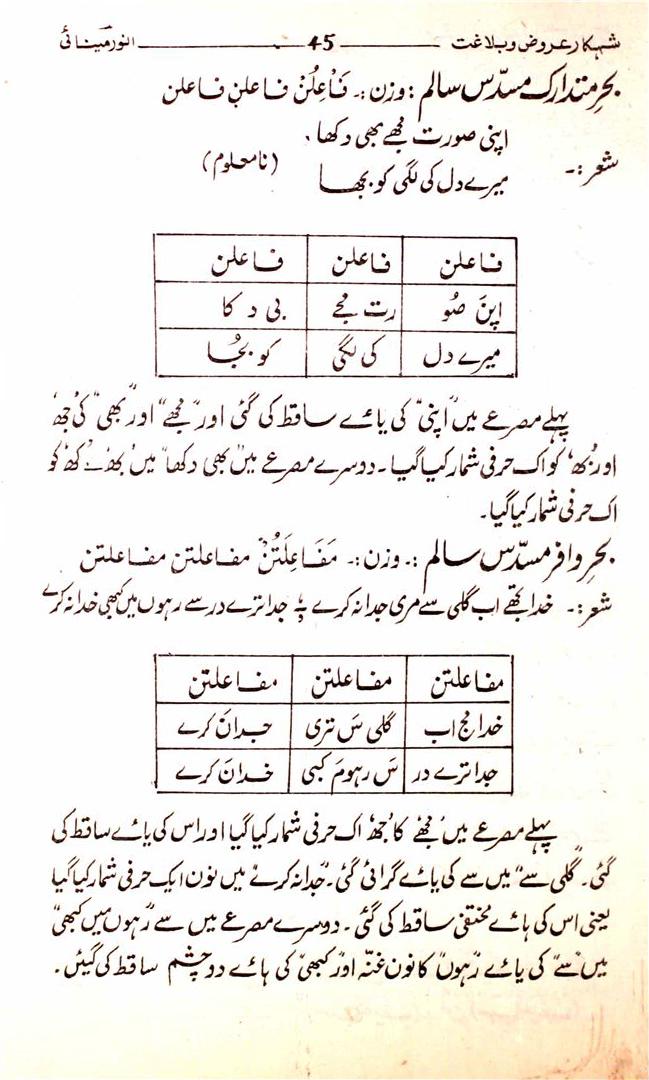 شہکار عروض و بلاغت ــــــ 45 ــــــ انور مینائی
بحرِ متدارک مسدّس سالم : وزن :۔ فَاْعِلُنْ فاعلن فاعلن
اپنی صورت مجھے بھی دکھا،
شعر :۔ میرے دل کی لگی کو بجھا (نامعلوم)
فاعلن فاعلن فاعلن
اپنَ صُو رت مجے بی دکا
میرے دل کی لگی کو بجُا
پہلے مصرعے میں "اپنی" کی یائے ساقط کی گئی اور "مجھے" اور "بھی" کی 'جھ'
اور 'بھ' کو اک حرفی شمار کیا گیا۔ دوسرے مصرعے میں 'بھی دکھا' میں 'بھ' ـ 'کھ' کو
اک حرفی شمار کیا گیا۔
بحرِ وافر مسدّس سالم :۔ وزن :۔ مَفَاعِلَتُنْ مفاعلتن مفاعلتن
شعر :۔ خدا مجھے اب گلی سے مری جدا نہ کرے پہ جدا ترے در سے رہوں میں کبھی خدا نہ کرے
مفاعلتن مفاعلتن مفاعلتن
خدا مج اب گلی سَ تری جدا نَ کرے
جدا ترے در سَ رہو مَ کبی خدا نَ کرے
پہلے مصرعے میں 'مجھے' کا 'جھ' اک حرفی شمار کیا گیا اور اس کی یائے ساقط کی
گئی۔ "گلی سے" میں سے کی یائے گرائی گئی۔ "جدا نہ کرے" میں نون ایک حرفی شمار کیا گیا
یعنی اس کی ہائے مختفی ساقط کی گئی۔ دوسرے مصرعے میں سے "رہوں میں کبھی"
میں "سے" کی یائے "رہوں" کا نون غنّہ اور "کبھی" کی ہائے دو چشم ساقط کی گیئں۔